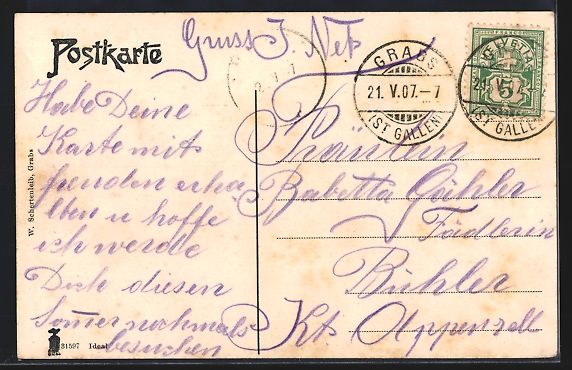 Postkarte
Gruss J. Nef
GRABS
21. V. 07. – 7
(ST. GALLEN)
HELVETIA
FRANCO
5
21. V
(ST. GALLEN)
Habe Deine
Karte mit
freuden erha
lten u hoffe
ich werde
Dich diesen
Sommer nochmals
besuchen
Fräulein
Babetta Gähler
Fädlerin
Bühler
Kt. Appenzell
W. Schertenleib, Grabs
31597 Ideal